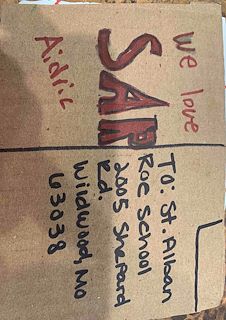 We love
SAR
Aidric
To: St. Alban
Roe School
2005 Shepard
Rd.
Wildwood, MO
63038